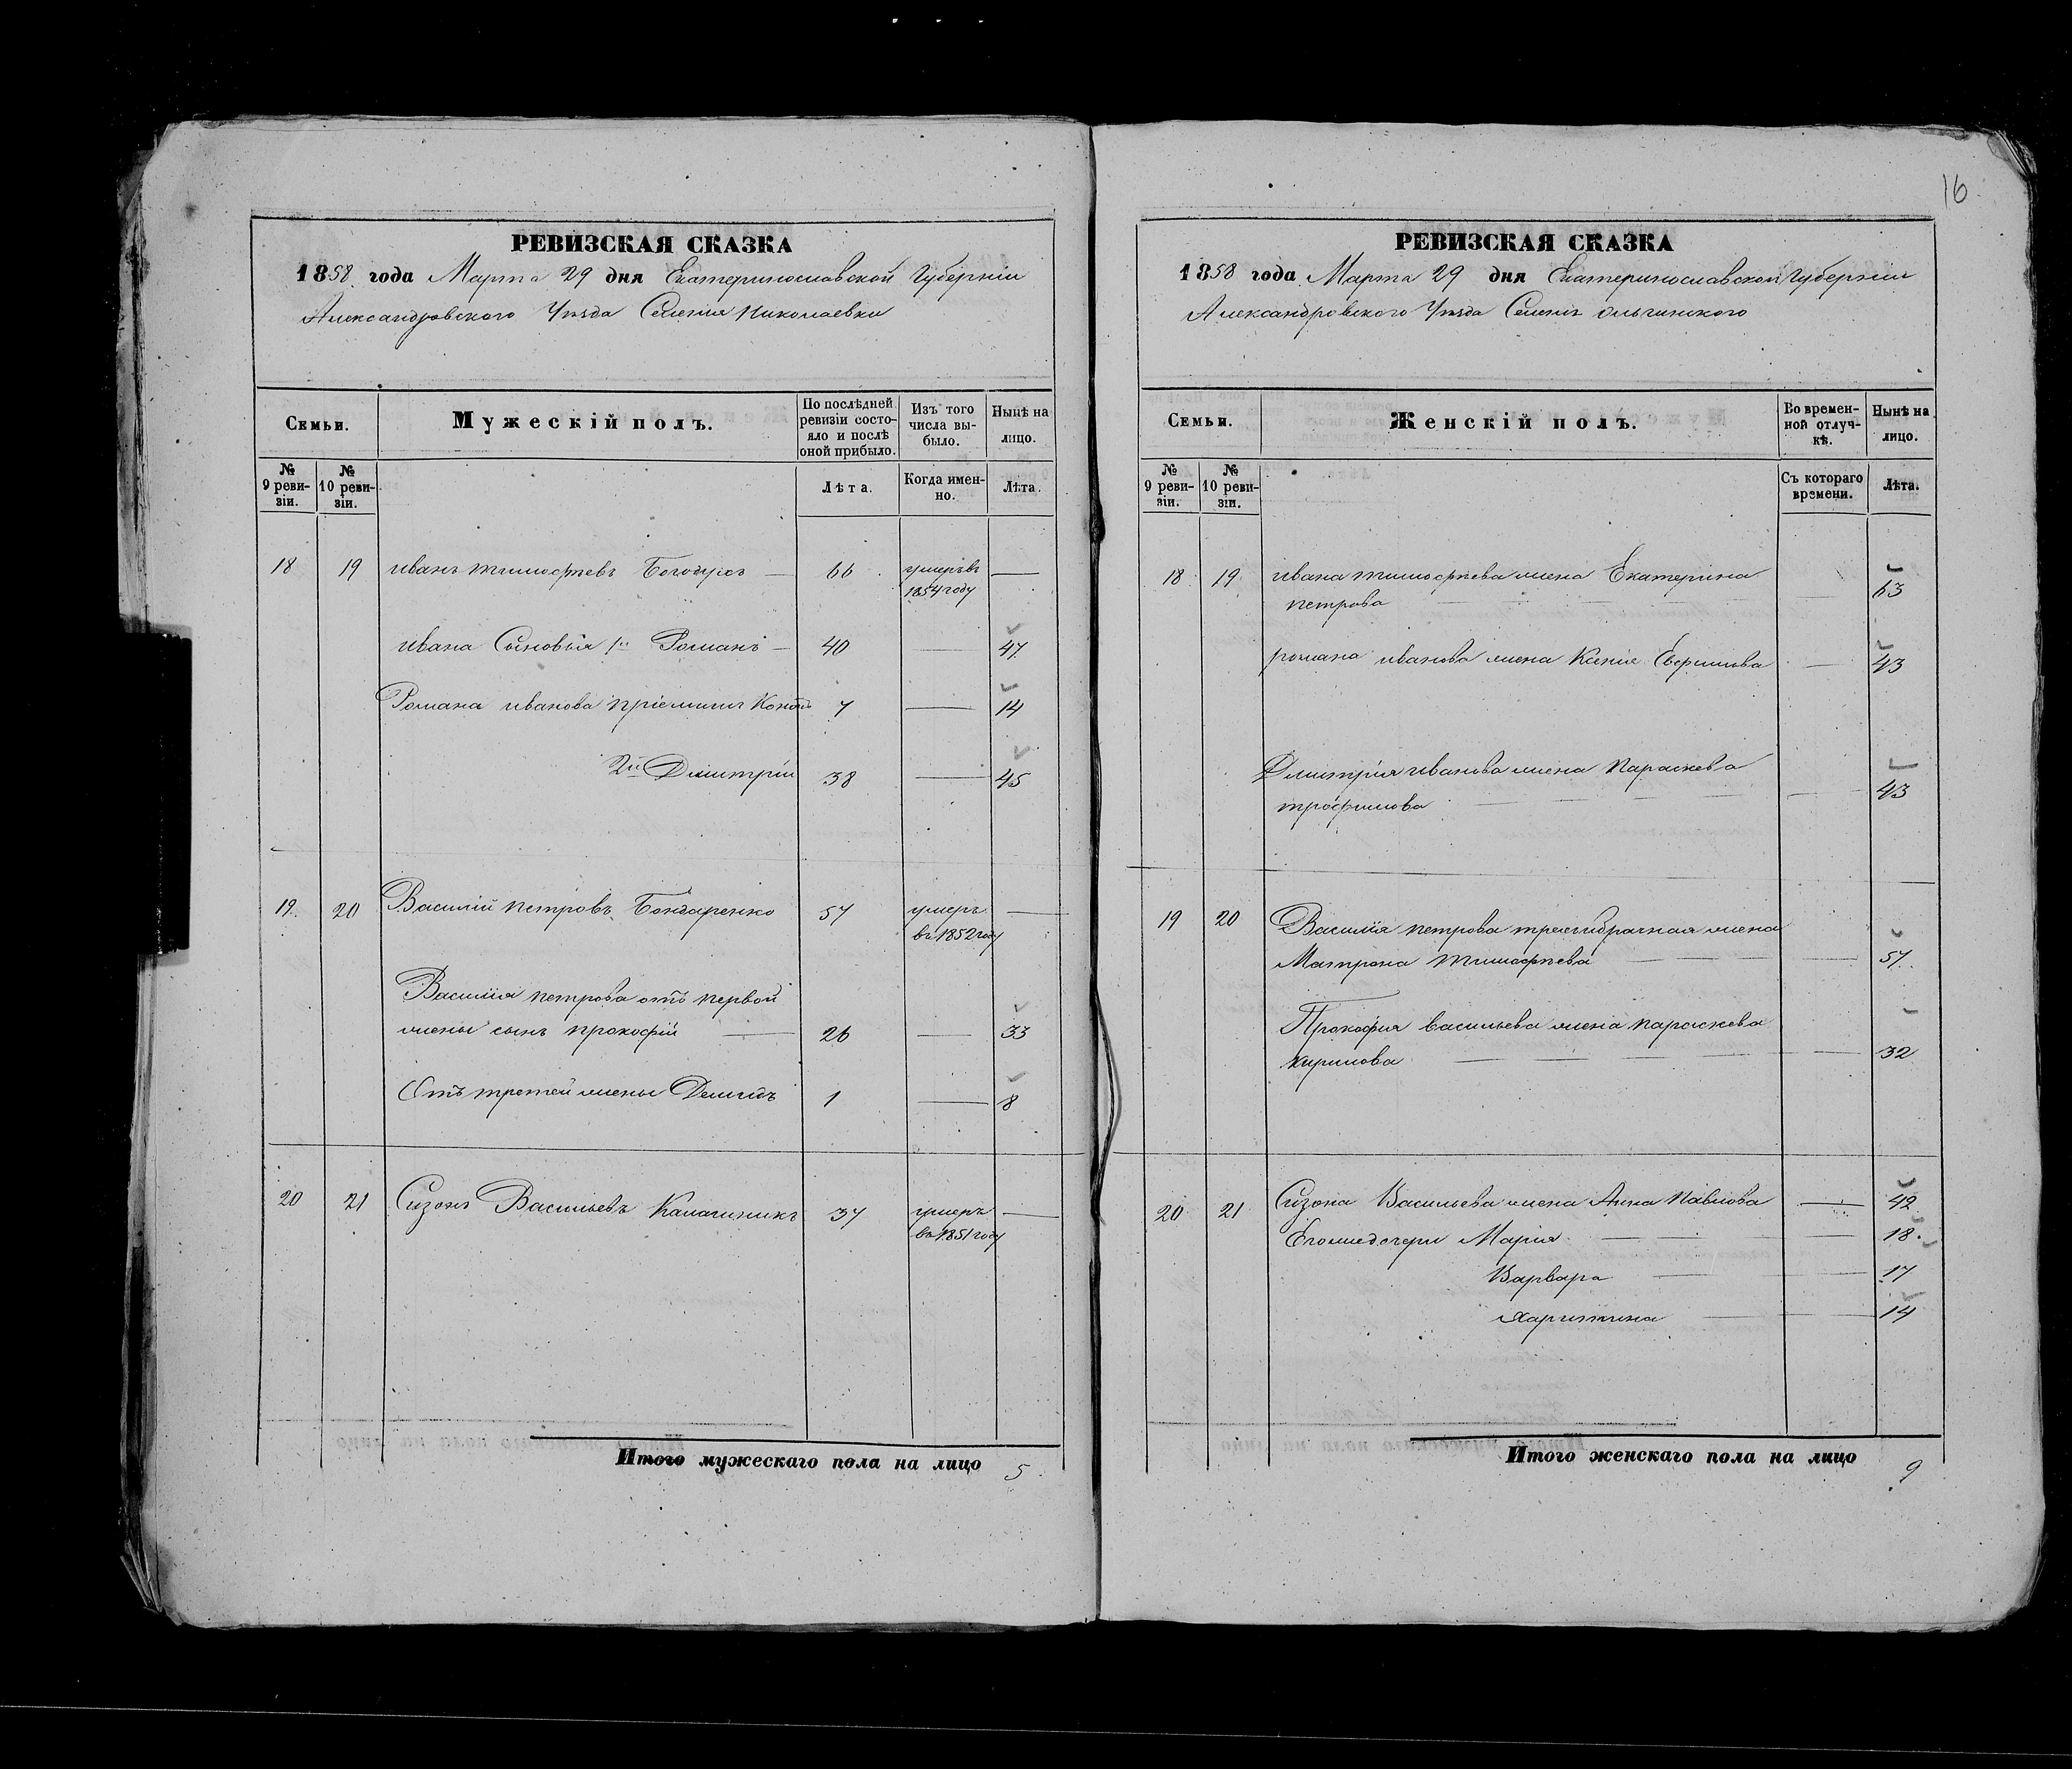 16
РЕВИЗСКАЯ СКАЗКА
1858 года Марта 29 дня Екатеринославской Губерніи
Александровского Уѣзда Селенія Николаевки
Семьи.
Мужескій полъ.
По послѣдней ревизіи состояло и послѣ оной прибыло.
Изъ того числа выбыло.
Нынѣ на лицо.
№ 9 ревизіи.
№ 10 ревизіи.
Лѣта.
Когда именно.
Лѣта.
18 19 иванъ тимофѣевъ — 66 умеръ въ —
1854 году
ивана Сыновья 1й Романъ — 40 — 47
Романа иванова пріемышъ 7 — 14
2й Дмитрій 38 — 45
19. 20 Василій петровъ Бондаренко 57 умеръ —
въ 1852 году
Василія петрова отъ первой
жены сынъ прокофій — 26 — 33
Отъ третей жены Демидъ 1 — 8
20 21 Сизонъ Васильевъ Калашникъ 37 умеръ —
въ 1851 году
Итого мужескаго пола на лицо 5
РЕВИЗСКАЯ СКАЗКА
1858 года Марта 29 дня Екатеринославской Губерніи
Александровского Уѣзда Селенія Ольгинского
Семьи.
Женскій полъ.
Во временной отлучкѣ.
Нынѣ на лицо.
№ 9 ревизіи.
№ 10 ревизіи.
Съ котораго времени.
Лѣта.
18 19 ивана тимофѣева жена Екатерина
петрова — — 63
романа иванова жена Ксенія Ефимова — 43
Дмитрія иванова жена параскева
трофимова — — 43
19 20 Василія петрова жена
Матрона тимофѣева — — 57
Прокофия васильева жена параскева
кирилова — — 32
20 21 Сизона Васильева жена Анна павлова — 42
Егожедочери Мария — — 18
Варвара — — 17
Харитина — — 14
Итого женскаго пола на лицо 9